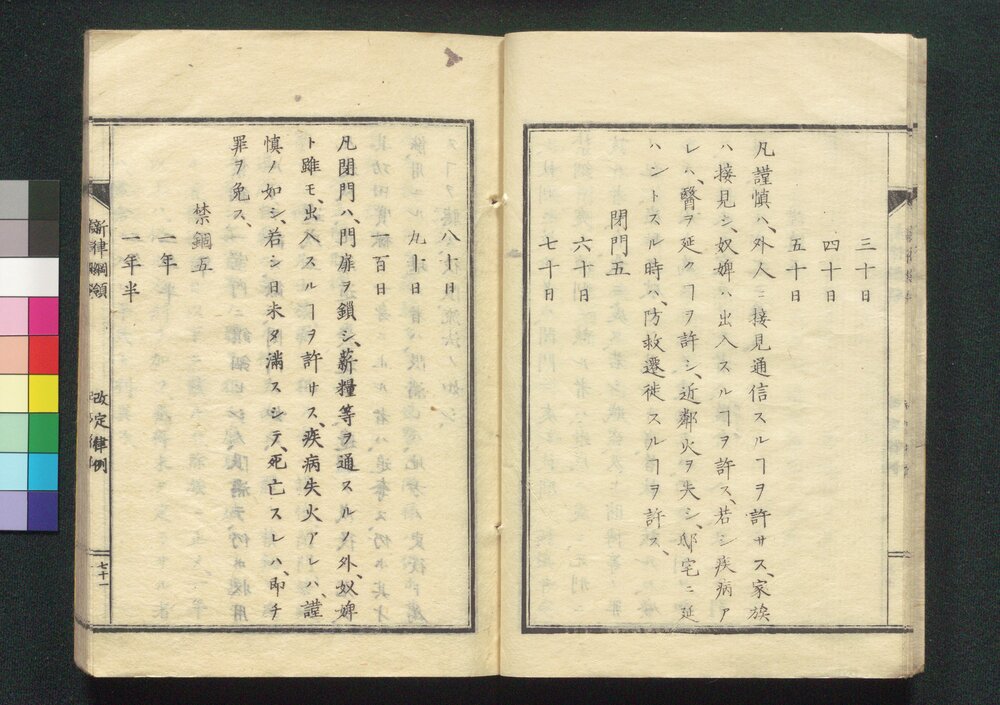 三十日
四十日
五十日
凡謹慎ハ、外人ニ接見通信スルヿヲ許サス、家族
ハ接見シ、奴婢ハ出入スルヿヲ許ス、若シ疾病ア
レハ、醫ヲ延クヿヲ許シ、近鄰火ヲ失シ、邸宅ニ延
ハントスル時ハ、防救遷徙スルヿヲ許ス、
閉門五
六十日
七十日
八十日
九十日
一百日
凡閉門ハ、門扉ヲ鎖シ、薪糧等ヲ通スルノ外、奴婢
ト雖モ、出入スルヿヲ許サス、疾病失火アレハ、謹
慎ノ如シ、若シ日未タ滿スシテ、死亡スレハ、即チ
罪ヲ免ス、
禁錮五
一年
一年半
新律綱領 改定律例 七十一